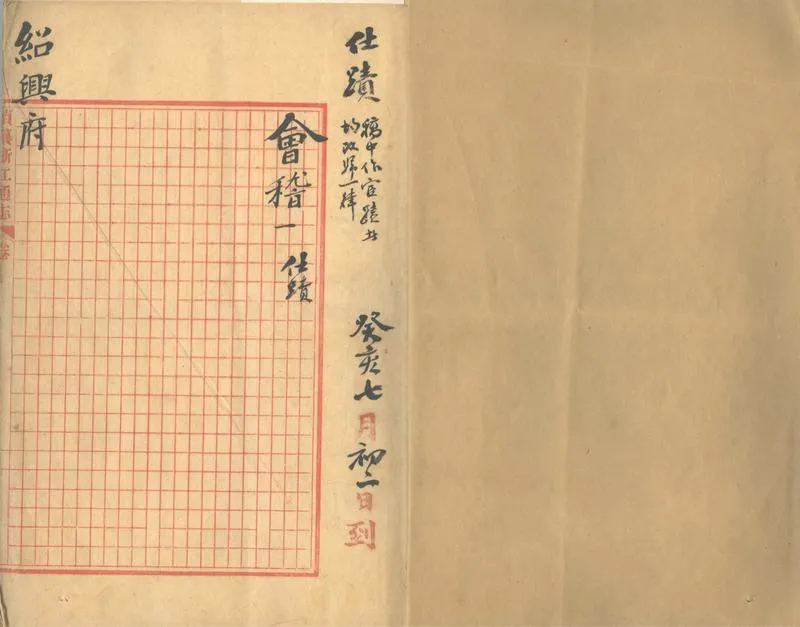 仕蹟
稿中作宦蹟者
均改歸一律
癸亥七月初二日到
會稽一 仕蹟
紹興府
續纂浙江通志 卷